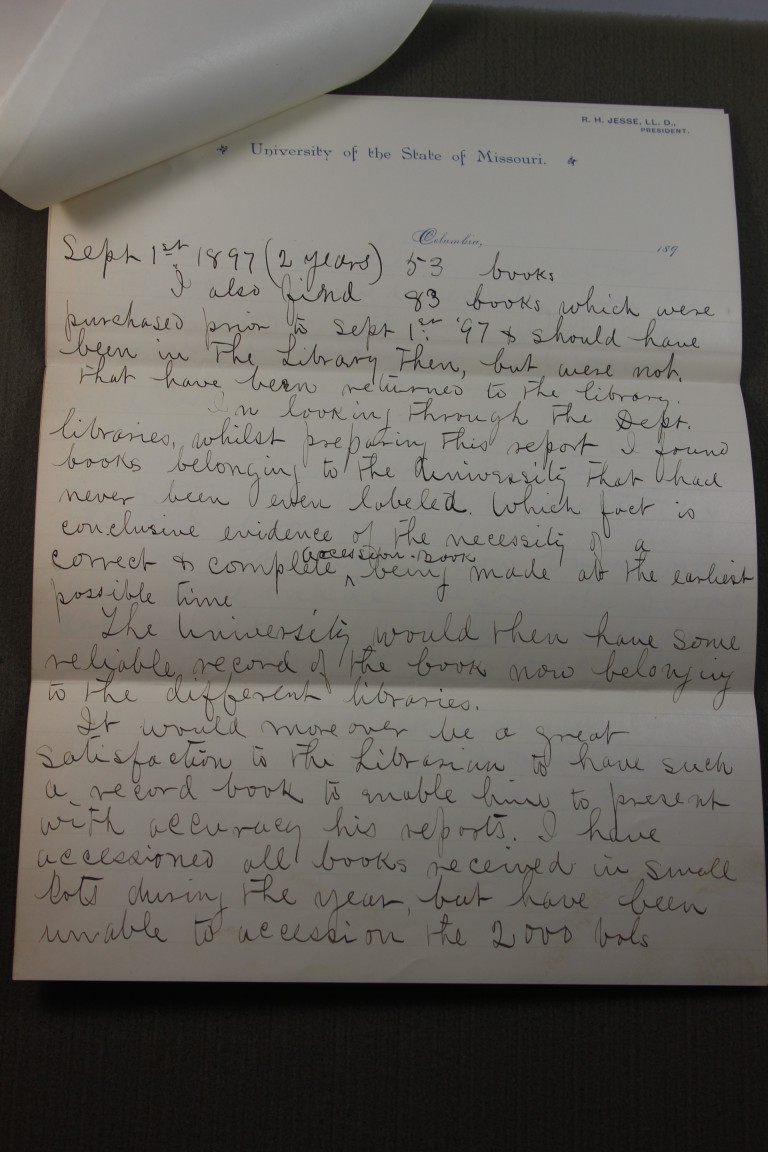 R. H. JESSE, LL. D.,
PRESIDENT.
University of the State of Missouri.
Columbia, 189
Sept 1st 1897 (2 years) 53 books
I also find 83 books which were
purchased prior to Sept 1st '97 & should have
been in the Library then, but were not,
that have been returned to the library.
In looking through the Dept.
libraries, whilst preparing this report I found
books belonging to the University that had
never been even labeled. Which fact is
conclusive evidence of the necessity of a
accession-book
correct & complete ^ being made at the earliest
possible time
The University would then have some
reliable record of the book now belonging
to the different libraries.
It would moreover be a great
satisfaction to the Librarian to have such
a record book to enable him to present
with accuracy his reports. I have
accessioned all books received in small
lots during the year, but have been
unable to accession the 2000 vols